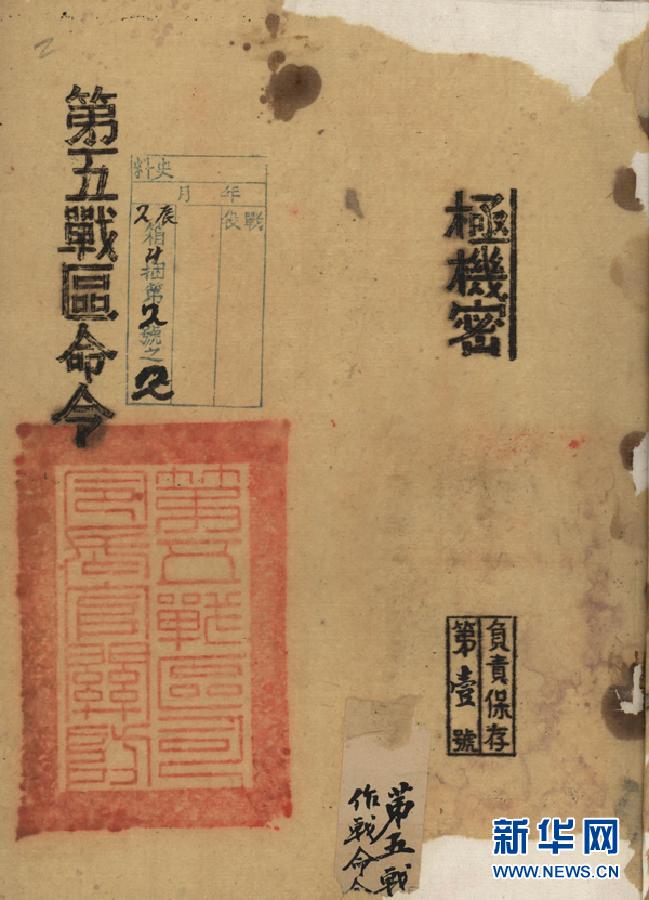 極機密
負責保存
第壹號
史料
年 月
戰役
箱 捆第2號之2
第五戰區命令
第五戰區司
令長官關防
第五戰
作戰命令
新华网
WWW.NEWS.CN